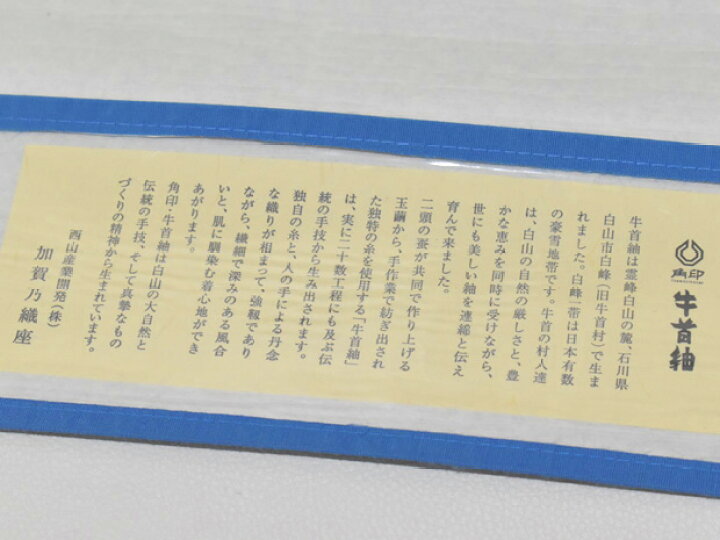 角印
牛首紬
牛首紬は霊峰白山の麓、石川県
白山市白峰（旧牛首村）で生ま
れました。白峰一帯は日本有数
の豪雪地帯です。牛首の村人達
は、白山の自然の厳しさと、豊
かな恵みを同時に受けながら、
世にも美しい紬を連綿と伝え
育んで来ました。
二頭の蚕が共同で作り上げる
玉繭から、手作業で紡ぎ出され
た独特の糸を使用する「牛首紬」
は、実に二十数工程にも及ぶ伝
統の手技から生み出されます。
独自の糸と、人の手による丹念
な織りが相まって、強靱であり
ながら、繊細で深みのある風合
いと、肌に馴染む着心地ができ
あがります。
角印・牛首紬は白山の大自然と
伝統の手技、そして真摯なもの
づくりの精神から生まれています。
西山産業開発（株）
加賀乃織座